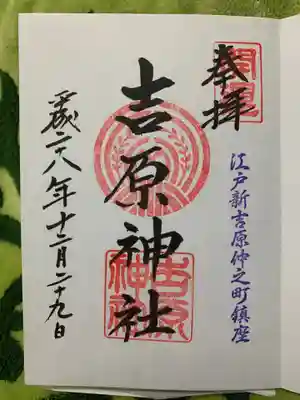 開運
奉拝
江戸新吉原仲之町鎮座
吉原神社
吉原神社
平成二八年十二月二十九日